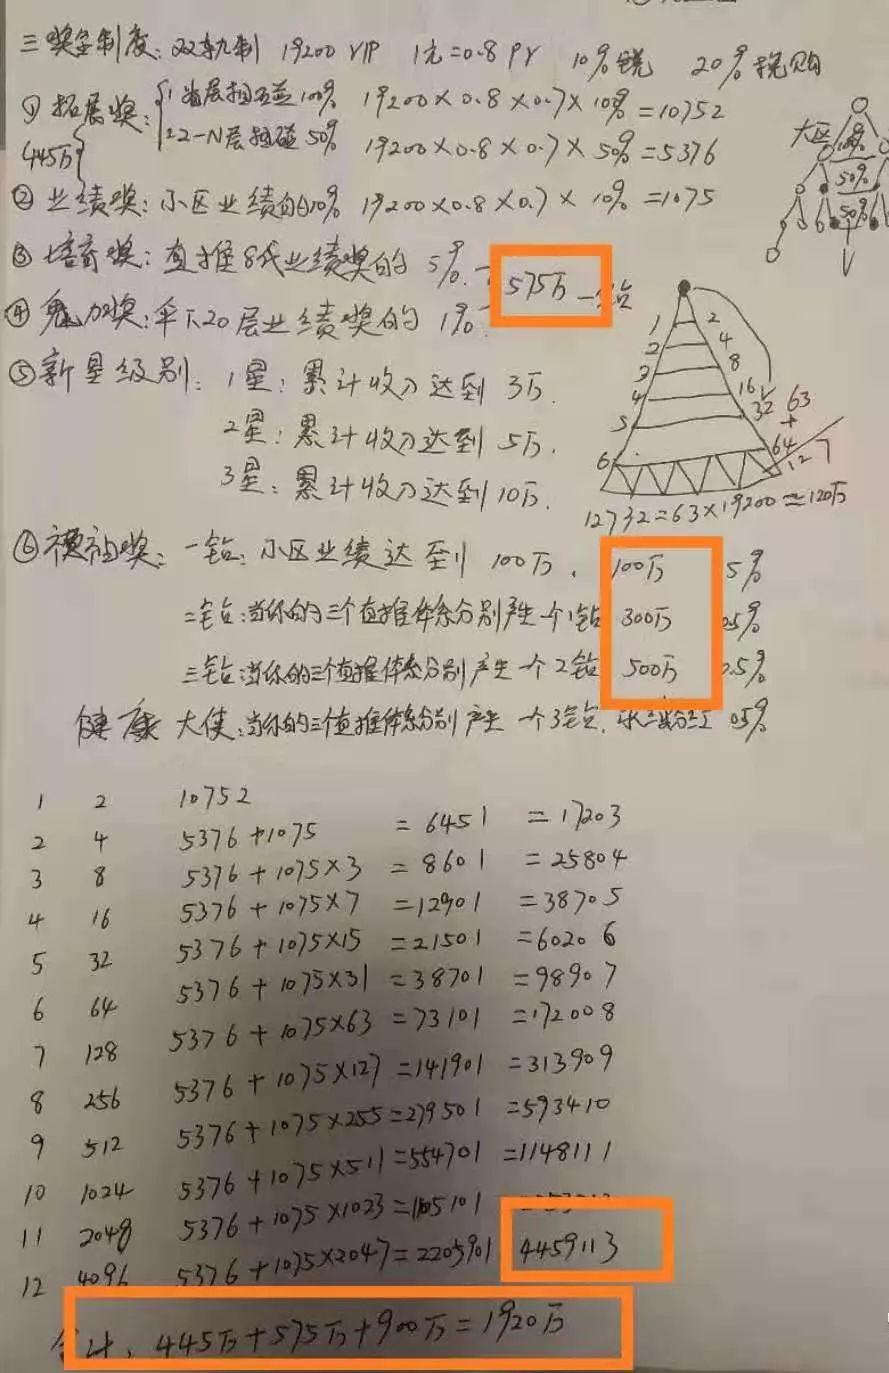 三 奖金制度: 双轨制 19200 VIP 1元=0.8 PV 10% 税 20% 税购
① 拓展奖: 1 首层相互碰100% 19200×0.8×0.7×10% =10752
445万 2 2-N层 碰 50% 19200×0.8×0.7×50%=5376
② 业绩奖: 小区业绩的10% 19200×0.8×0.7× 10% =1075
③ 培育奖: 直推8代业绩奖的 5%. 575万 一钻
④ 魅力奖: 伞下20层业绩奖的 1%
⑤ 新星级别: 1星: 累计收入达到 3万.
2星: 累计收入达到 5万.
3星: 累计收入达到10万.
⑥ 福祉奖: 一钻: 小区业绩达到 100万. 100万 5%
二钻: 当你的三个直推体系分别产生一个1钻 300万 0.5%
三钻: 当你的三个直推体系分别产生一个2钻 500万 0.5%
健康大使: 当你的三个直推体系分别产生一个3钻. 05%
大区
100%
50%
50%
1 2
2 4
3 8
4 16
5 32 63
+
6 64
127
12732=63×19200=120万
1 2 10752
2 4 5376+1075 =6451 =17203
3 8 5376+1075×3 =8601 =25804
4 16 5376+1075×7 =12901 =38705
5 32 5376+1075×15 =21501 =60206
6 64 5376+1075×31 =38701 =98907
7 128 5376+1075×63 =73101 =172008
8 256 5376+1075×127 =141901 =313909
9 512 5376+1075×255=279501 =593410
10 1024 5376+1075×511=554701 =1148111
11 2048 5376+1075×1023=1105101
12 4096 5376+1075×2047=2205901 4459113
合计, 445万+575万+900万=1920万